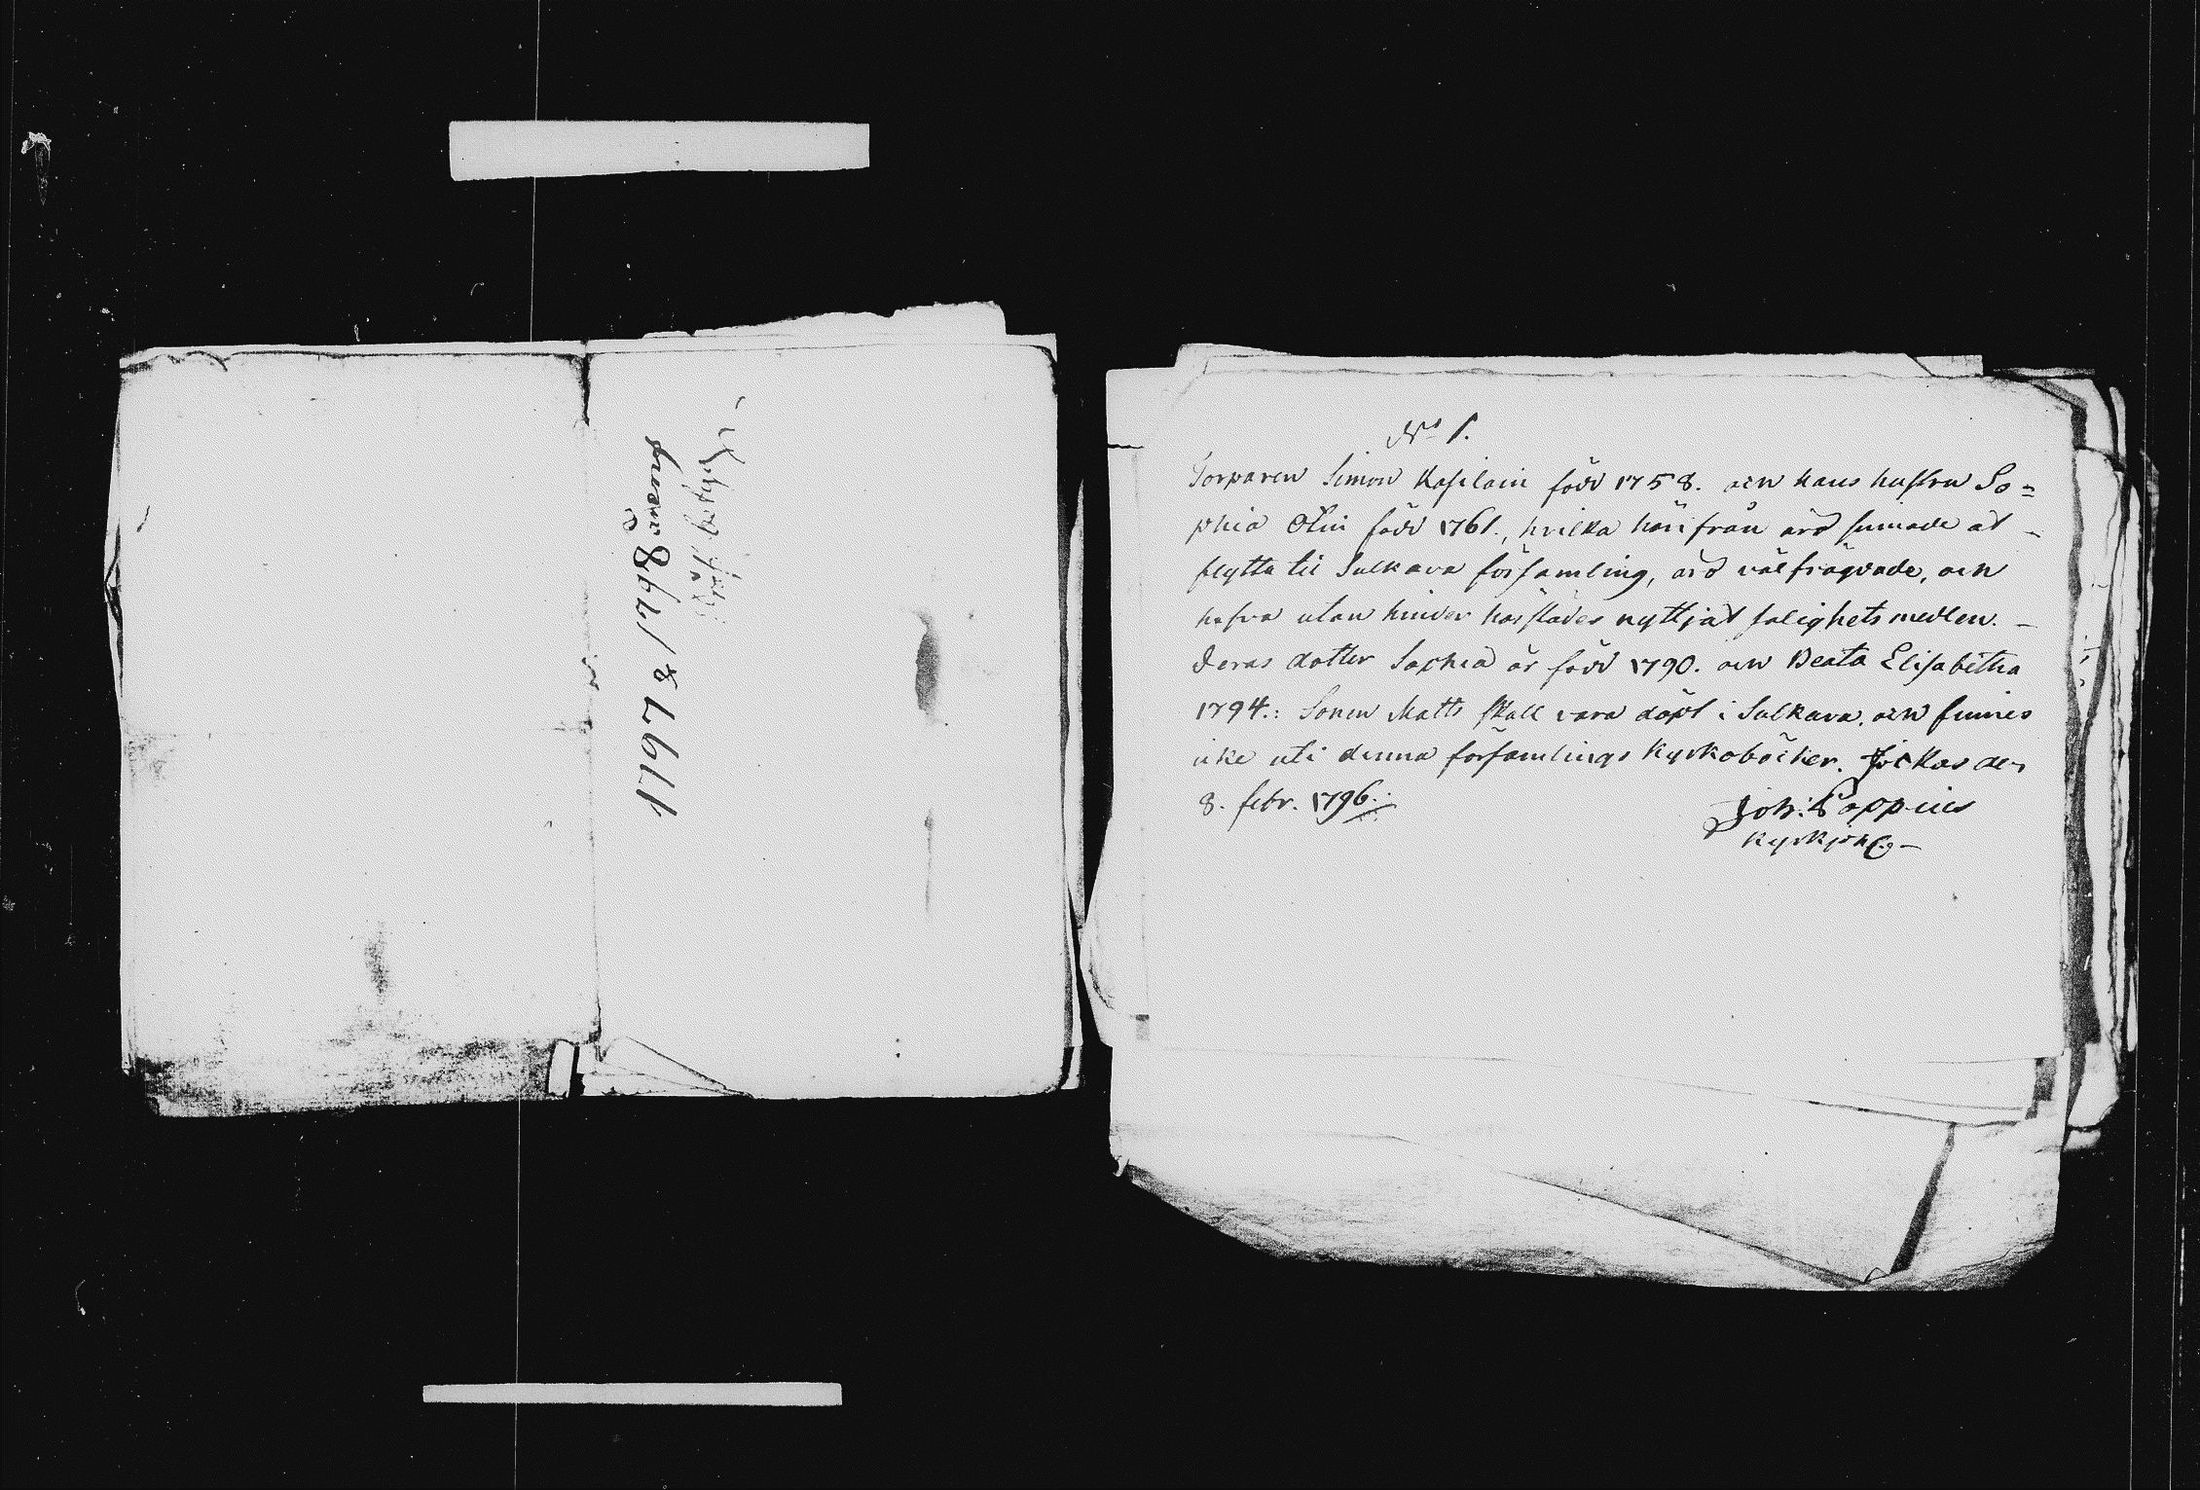 1797 & 1798
No 1.
Torparen Simon Kasilain född 1758. och hans hustru So=
phia Otin född 1761., hvilka härifrån äro sinnade at
flytta til Sulkava församling, äro välfrägdade, och
hafva utan hinder härstädes nyttjat salighets medlen. –
Deras dotter Sophia är född 1790. och Beata Elisabetha
1794.: Sonen Matts skall vara döpt i Sulkava, och finnes
icke uti denna församlings Kyrkoböcker. Jockas den
8. febr. 1796.
Joh: Poppius